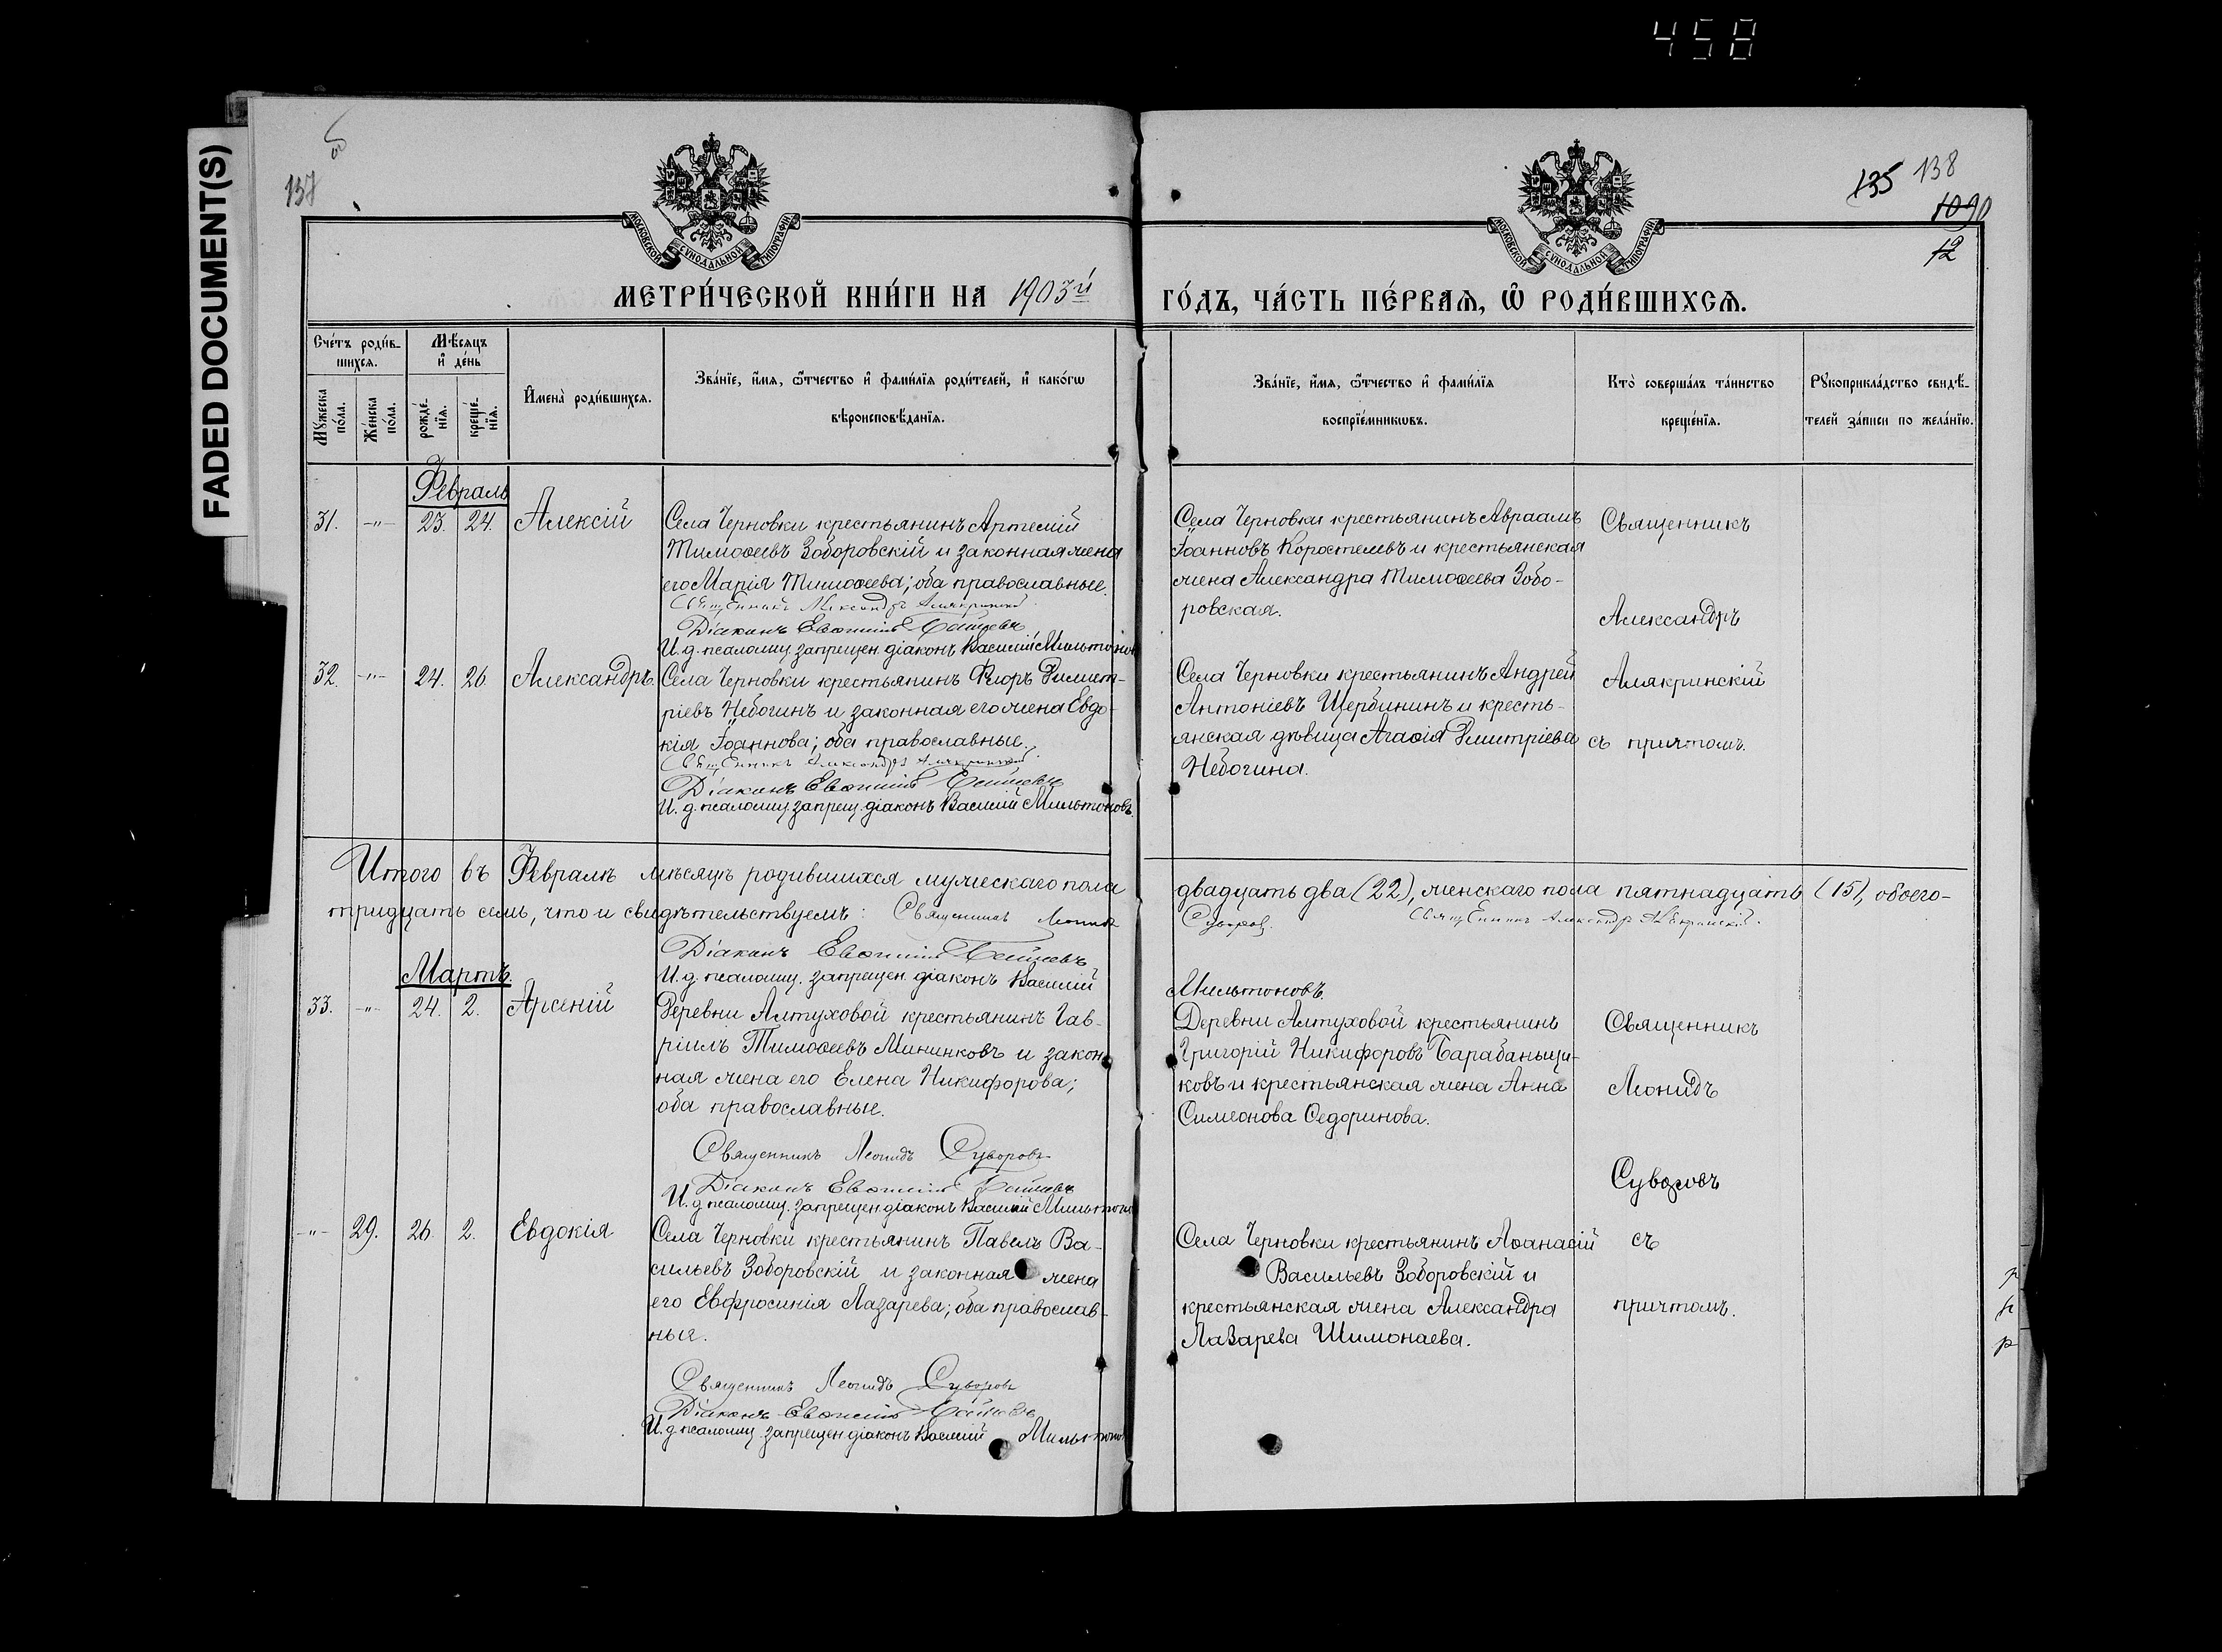 458
FADED DOCUMENT(S)
137
135 138
1090
12
МОСКОВСКОЙ СѴНОДАЛЬНОЙ ТИПОГРАФІИ
МОСКОВСКОЙ СѴНОДАЛЬНОЙ ТИПОГРАФІИ
МЕТРИ́ЧЕСКОЙ КНИ́ГИ НА 1903й ГО́ДЪ, ЧА́СТЬ ПЕ́РВАѦ, Ѡ҆ РОДИ́ВШИХСѦ.
Сче́тъ роди́в-
шихсѧ.
Мѣ́сѧцъ
и҆ де́нь
Мꙋ́жеска по́ла.
Же́нска по́ла.
рожде́-
нїѧ.
креще́-
нїѧ.
И҆мена̀ роди́вшихсѧ.
Зва́нїе, и҆́мѧ, ѻ҆́тчество и҆ фами́лїѧ роди́телей, и҆ како́гѡ
вѣроисповѣ́данїѧ.
Зва́нїе, и҆́мѧ, ѻ҆́тчество и҆ фами́лїѧ
воспрїе́мникѡвъ.
Кто̀ соверша́лъ та́инство
креще́нїѧ.
Рꙋкоприкла́дство свидѣ́-
телей за́писи по жела́нїю.
Февраль
31. -"- 23. 24. Алексій
Села Черновки крестьянинъ Артемій
Тимоѳеевъ Зоборовскій и законная жена
его Марія Тимоѳеева; оба православные.
Священникъ Александръ Алякринскій.
Діаконъ Евѳимій
И. д. псаломщ. запрещен. діаконъ Василій Мильтоновъ
Села Черновки крестьянинъ Авраамъ
Іоанновъ Коростелевъ и крестьянская
жена Александра Тимоѳеева Зобо-
ровская.
Священникъ
Александръ
Алякринскій
съ причтомъ.
32. -"- 24. 26. Александръ.
Села Черновки крестьянинъ Флоръ Димит-
ріевъ Небогинъ и законная его жена Евдо-
кія Іоаннова; оба православные.
Священникъ Александръ Алякринскій.
Діаконъ Евѳимій
И. д. псаломщ. запрещ. діаконъ Василій Мильтоновъ.
Села Черновки крестьянинъ Андрей
Антоніевъ Щербининъ и кресть-
янская дѣвица Агаѳія Димитріева
Небогина.
Итого въ Февралѣ мѣсяцѣ родившихся мужескаго пола двадцать два (22), женскаго пола пятнадцать (15), обоего-
тридцать семь, что и свидѣтельствуемъ: Священникъ Леонидъ Суворовъ. Священникъ Александръ Алякринскій.
Діаконъ Евѳимій
И. д. псаломщ. запрещен. діаконъ Василій Мильтоновъ.
Мартъ
33. -"- 24. 2. Арсеній
Деревни Алтуховой крестьянинъ Гав-
ріилъ Тимоѳеевъ Мининковъ и закон-
ная жена его Елена Никифорова;
оба православные.
Священникъ Леонидъ Суворовъ
Діаконъ Евѳимій
И. д. псаломщ. запрещен. діаконъ Василій Мильтоновъ
Деревни Алтуховой крестьянинъ
Григорій Никифоровъ Барабаньщи-
ковъ и крестьянская жена Анна
Симеонова Седоринова.
Священникъ
Леонидъ
Суворовъ
съ
причтомъ.
-"- 29. 26. 2. Евдокія
Села Черновки крестьянинъ Павелъ Ва-
сильевъ Зоборовскій и законная жена
его Евфросинія Лазарева; оба православ-
ные.
Священникъ Леонидъ Суворовъ
Діаконъ Евѳимій
И. д. псаломщ. запрещен. діаконъ Василій Мильтоновъ
Села Черновки крестьянинъ Аѳанасій
Васильевъ Зоборовскій и
крестьянская жена Александра
Лазарева Шимонаева.